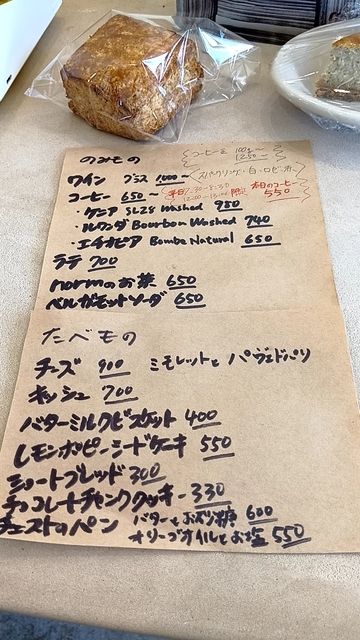 のみもの
コーヒー豆 100g~
1250~
ワイン グラス 1000~ (スパークリング・白・ロゼ・赤)
コーヒー 650~ 平日 限定 本日のコーヒー 550
・ケニア SL28 Washed 980
・ルワンダ Bourbon Washed 740
・エチオピア Bombe Natural 650
ラテ 700
normのお茶 650
ベルガモットソーダ 650
たべもの
チーズ 900 ミモレットと パヴェドパリ
キッシュ 700
バターミルクビスケット 400
レモンポピーシードケーキ 550
ショートブレッド 300
チョコレートチャンククッキー 330
チェストのパン バターとお砂糖 600
オリーブオイルとお塩 550